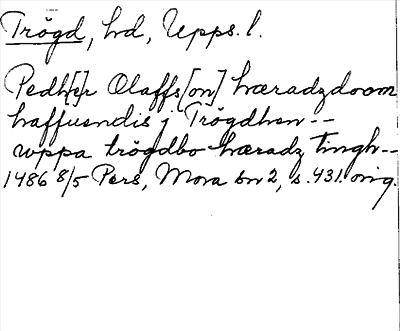 Trögd, hd, Upps. l.
Pedh[e]r Olaffs[on] hæradzdoom
haffuendis j Trögdhen --
uppa trögdbo hæradz tingh --
1486 8/5 Pers, Mora bn 2, s. 431. orig.